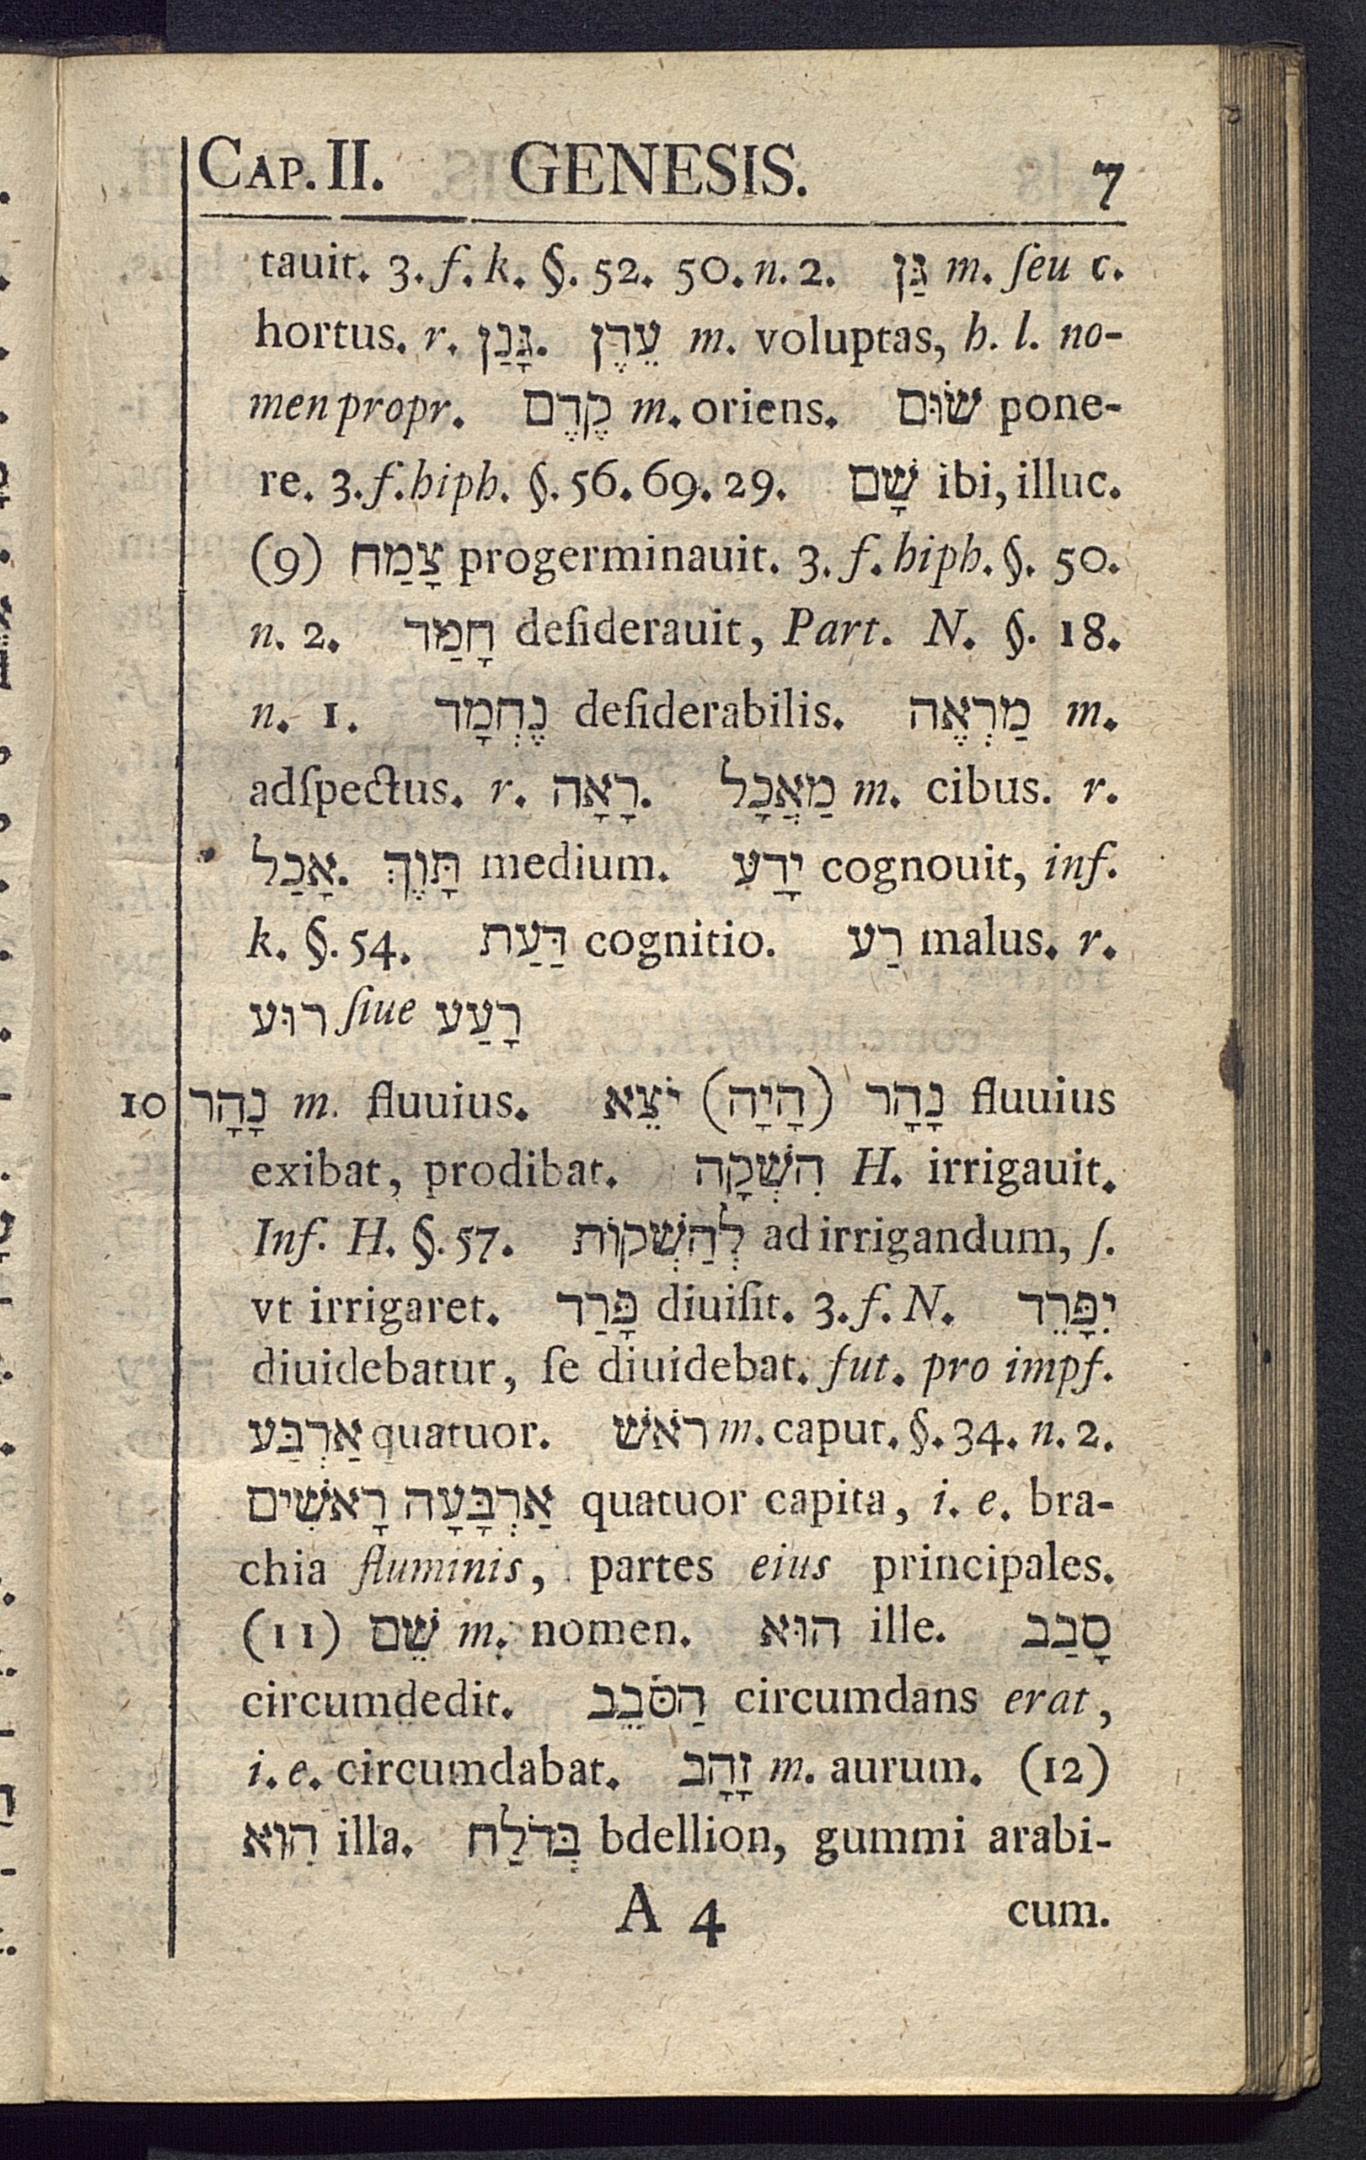 CAP. II. GENESIS. 7
tauit. 3. f. k. §. 52. 50. n. 2. גַּן m. ſeu c.
hortus. r. גָּנַן. עֵדֶן m. voluptas, h. l. no-
men propr. קֶדֶם m. oriens. שׂוּם pone-
re. 3. f. hiph. §. 56. 69. 29. שָׁם ibi, illuc.
(9) צָמַח progerminauit. 3. f. hiph. §. 50.
n. 2. חָמַד deſiderauit, Part. N. §. 18.
n. 1. נֶחְמָד deſiderabilis. מַרְאֶה m.
adſpectus. r. רָאָה. מַאֲכָל m. cibus. r.
אָכַל. תָּוֶךְ medium. יָדַע cognouit, inf.
k. §. 54. דַּעַת cognitio. רַע malus. r.
רוּע ſiue רָעַע
10 נָהָר m. fluuius. נָהָר (הָיָה) יֹצֵא fluuius
exibat, prodibat. הִשְׁקָה H. irrigauit.
Inf. H. §. 57. לְהַשְׁקוֹת ad irrigandum, ſ.
vt irrigaret. פָּרַד diuiſit. 3. f. N. יִפָּרֵד
diuidebatur, ſe diuidebat. fut. pro impf.
אַרְבַּע quatuor. רֹאשׁ m. caput. §. 34. n. 2.
אַרְבָּעָה רָאשִׁים quatuor capita, i. e. bra-
chia fluminis, partes eius principales.
(11) שֵׁם m. nomen. הוּא ille. סָבַב
circumdedit. הַסֹּבֵב circumdans erat,
i. e. circumdabat. זָהָב m. aurum. (12)
הִוא illa. בְּדֹלַח bdellion, gummi arabi-
A 4 cum.